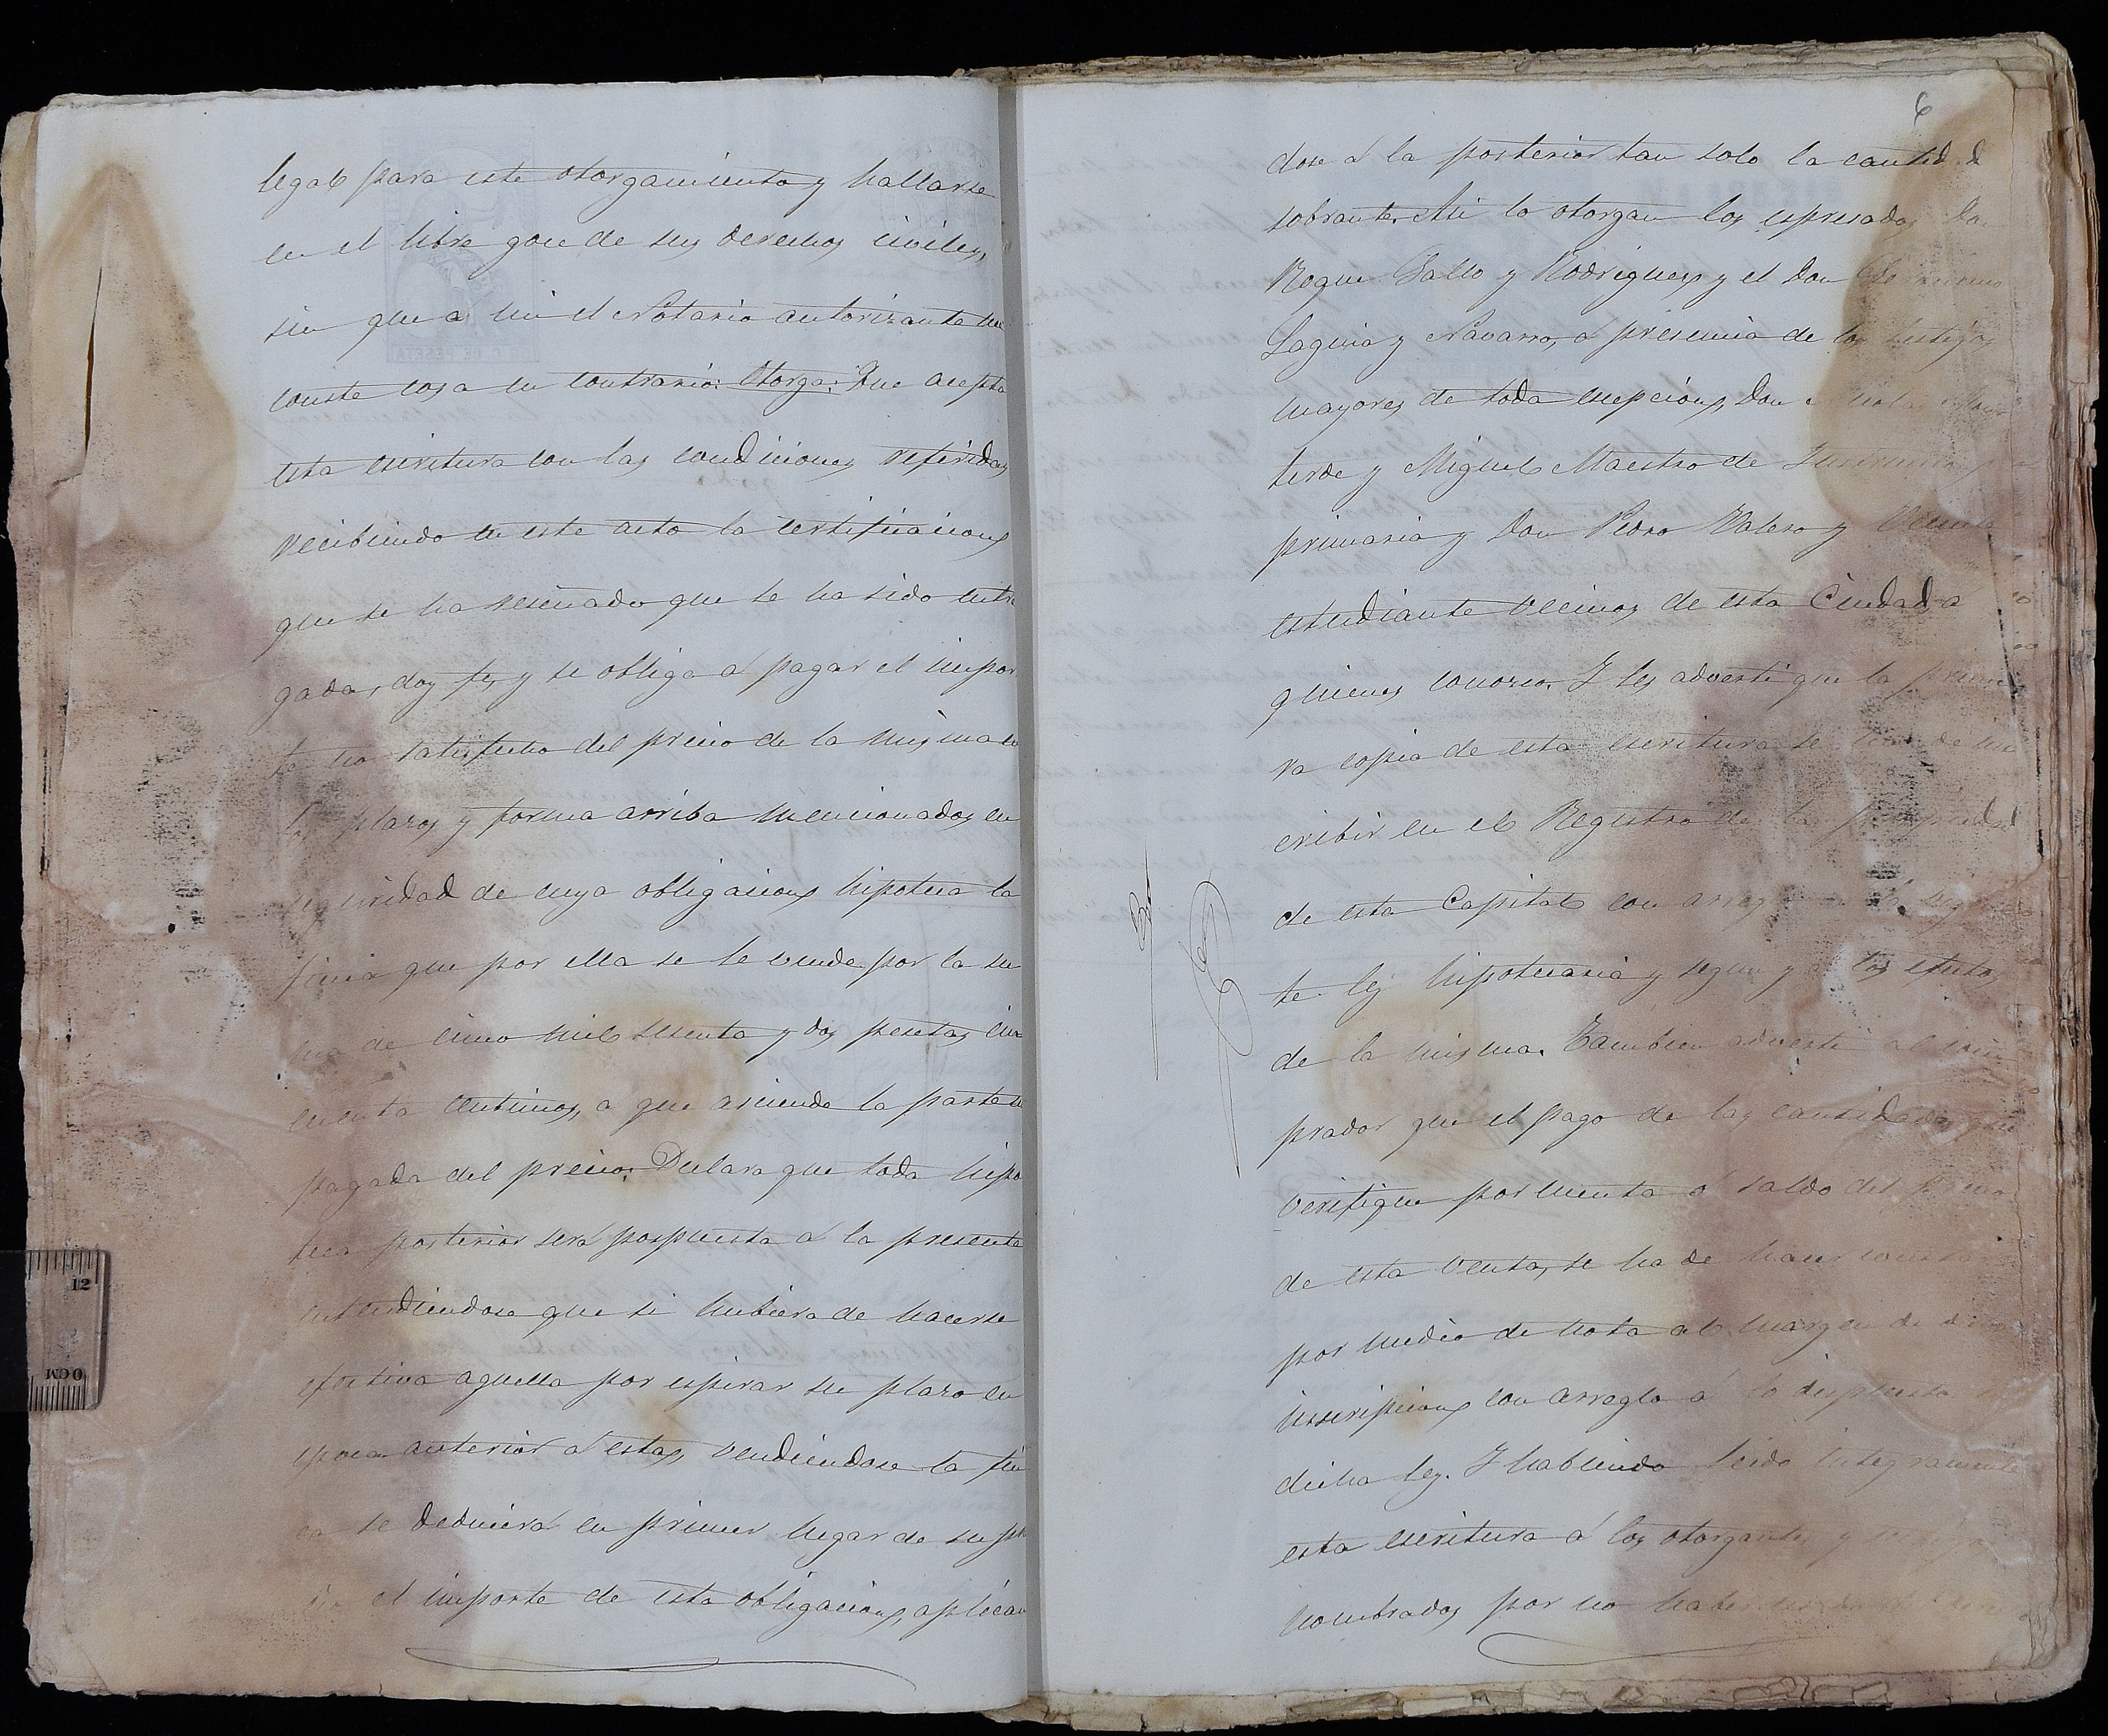 legal para este otorgamiento y hallarse
en el libre goce de sus derechos civiles,
sin que a mi el Notario autorizante me
conste cosa en contrario: Otorga: Que acepta
esta escritura con las condiciones referidas
recibiendo en este acto la certificacion
que se ha reseñado que le ha sido entre
gada, doy fe, y se obliga á pagar el impor
te no satisfecho del precio de la misma en
los plazos y forma arriba mencionados en
seguridad de cuya obligacion hipoteca la
finca que por ella se le vende por la su
ma de cinco mil sesenta y dos pesetas cin
cuenta centimos, a que asciende la parte no
pagada del precio. Declara que toda hipo
teca posterior será pospuesta á la presente
entendiendose que si hubiera de hacerse
efectiva aquella por espirar su plazo en
epoca anterior á esta, vendiendose la fin
ca se deducirá en primer lugar de su pre
cio el importe de esta obligacion, aplican
6
dose á la posterior tan solo la cantidad
sobrante. Asi lo otorgan los espresados Don
Roque Gallo y Rodriguez y el Don
Laguia y Navarro, á presencia de los testigos
mayores de toda escepcion, Don Mon
terde y Miguel Maestro de Instruccion
primaria y Don Pedro Valero y Vicente
estudiante vecinos de esta Ciudad, á
quienes conozco. Y les adverti que la prime
ra copia de esta escritura se ha de ins
cribir en el Registro de la propiedad
de esta Capital con arreglo á la vigen
te ley hipotecaria y segun y á los efectos
de la misma. Tambien adverti al com
prador que el pago de las cantidades que
verifique por cuenta ó saldo del precio
de esta venta, se ha de hacer constar
por medio de nota al margen de dicha
inscripcion con arreglo á lo dispuesto en
dicha ley. Y habiendo leido integramente
esta escritura á los otorgantes y testigos
nombrados por no haber